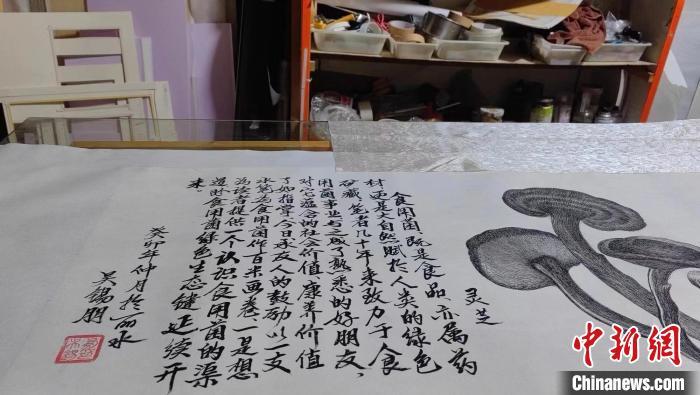 灵芝
食用菌既是食品、亦属药
材更是大自然赋于人类的绿色
矿藏。笔者几十年来致力于食
用菌事业与之成了熟悉的好朋友，
对它蕴含的社会价值、康养价值
了如指掌今日承友人的鼓励以一支
水笔为食用菌作百米画卷、一是想
为读者提供一个认识食用菌的渠
道 食用菌绿色生态健延续开
来.
癸卯年仲月於丽水
吴锡朋
中新网
Chinanews.com